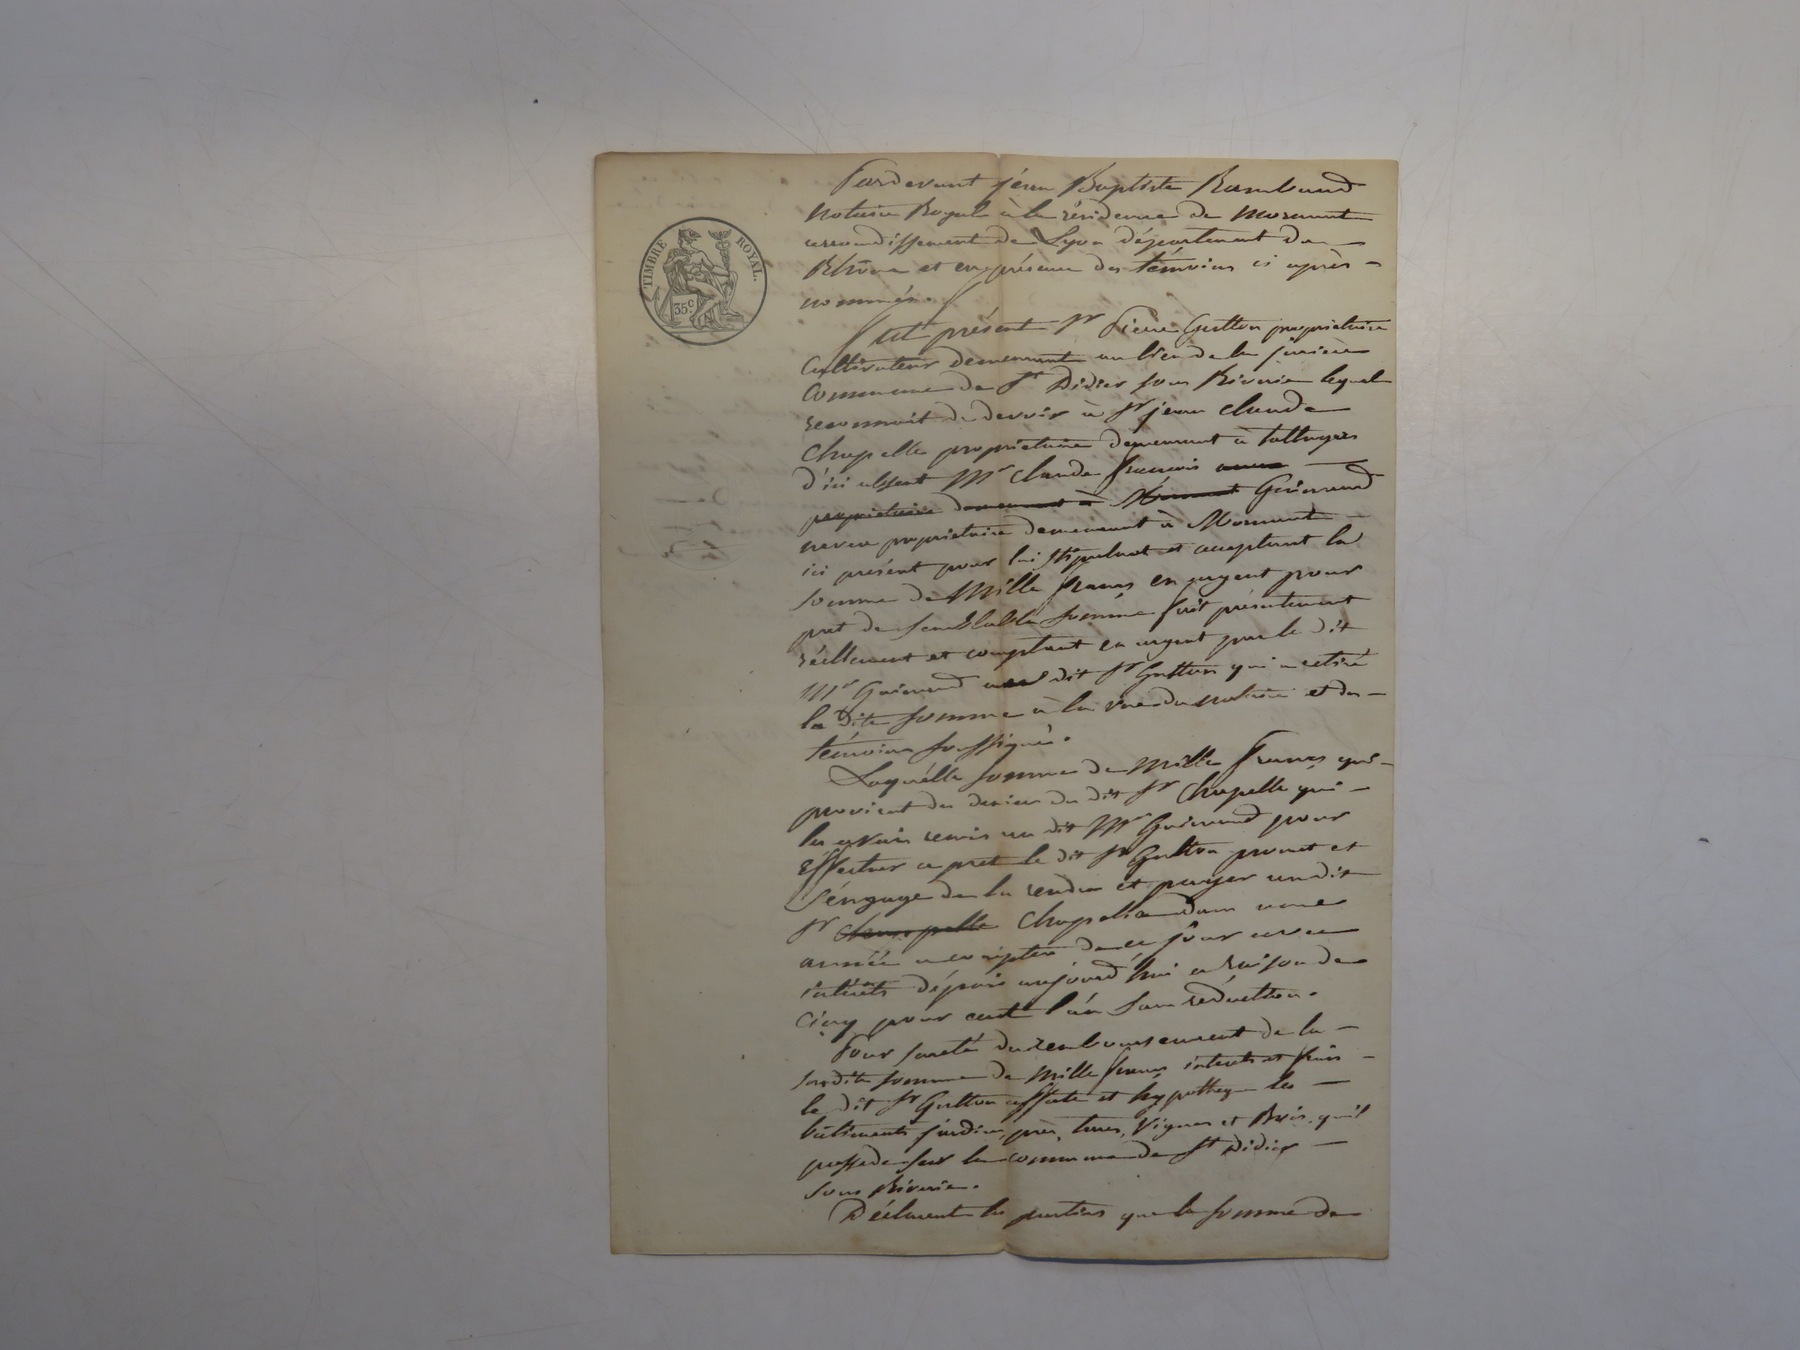 TIMBRE ROYAL.
35c.
Pardevant jéan Baptiste Rambaud
Notaire Royal à la résidence de Mornant
arrondissement de Lyon département du
Rhône et en présence des témoins ci après
nommés.
fut présent Sr Pierre Gutton propriétaire
Cultivateur demeurant au lieu de la
Commune de St Didier sous Riverie lequel
reconnoit de devoir à Sr jean claude
Chapelle propriétaire demeurant à
d'ici absent Mr Claude françois
propriétaire demeurant à Mornant Guinand
neveu propriétaire demeurant à Mornant
ici présent pour lui stipulant et acceptant la
somme de Mille francs en argent pour
pret de semblable somme fait présentement
réellement et comptant en argent par le dit
Mr Guinand au dit Sr Gutton qui a retiré
la dite somme à la vue du notaire et des
témoins soussignés.
Laquelle somme de Mille francs qui
provient des deniers du dit Sr Chapelle qui
les avoir remis au dit Mr Guinand pour
Effectuer ce pret le dit Sr Gutton promet et
s'éngage de la rendre et payer au dit
Sr Chapelle dans une
année a compter de ce jour avec
intérêts dépuis aujourd'hui a raison de
Cinq pour cent l'án sans réduction.
Pour sureté du remboursement de la
susdite somme de Mille francs interets et frais
le dit Sr Gutton affecte et hypotheque les
bâtiments jardin, près, terres, Vignes et Bois, qu'il
possede sur la commune de St Didier
sous Riverie.
Déclarent les parties que la somme de